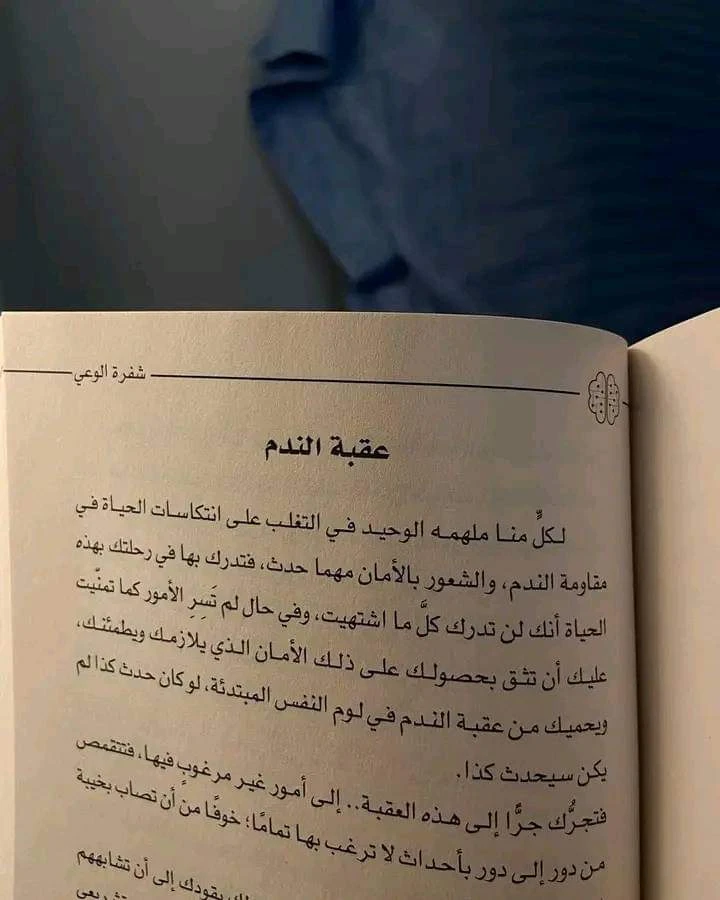 شفرة الوعي
عقبة الندم
لكلٍّ منا ملهمه الوحيد في التغلب على انتكاسات الحياة في
مقاومة الندم، والشعور بالأمان مهما حدث، فتدرك بها في رحلتك بهذه
الحياة أنك لن تدرك كلَّ ما اشتهيت، وفي حال لم تَسِرِ الأمور كما تمنّيت
عليك أن تثق بحصولك على ذلك الأمان الذي يلازمك ويطمئنك،
ويحميك من عقبة الندم في لوم النفس المبتدئة، لو كان حدث كذا لم
يكن سيحدث كذا.
فتجرُّك جرًّا إلى هذه العقبة.. إلى أمور غير مرغوب فيها، فتتقمص
من دور إلى دور بأحداث لا ترغب بها تمامًا؛ خوفًا من أن تصاب بخيبة
يقودك إلى أن تشابههم